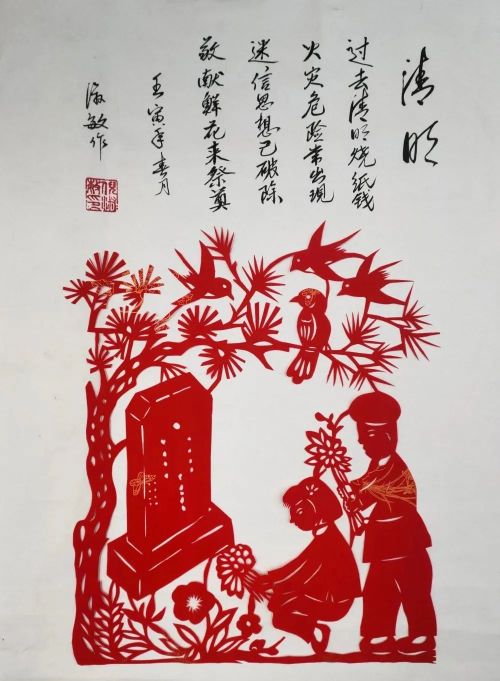 清明
过去清明烧纸钱
火灾危险常出现
迷信思想已破除
敬献鲜花来祭奠
壬寅年春月
淑敏作